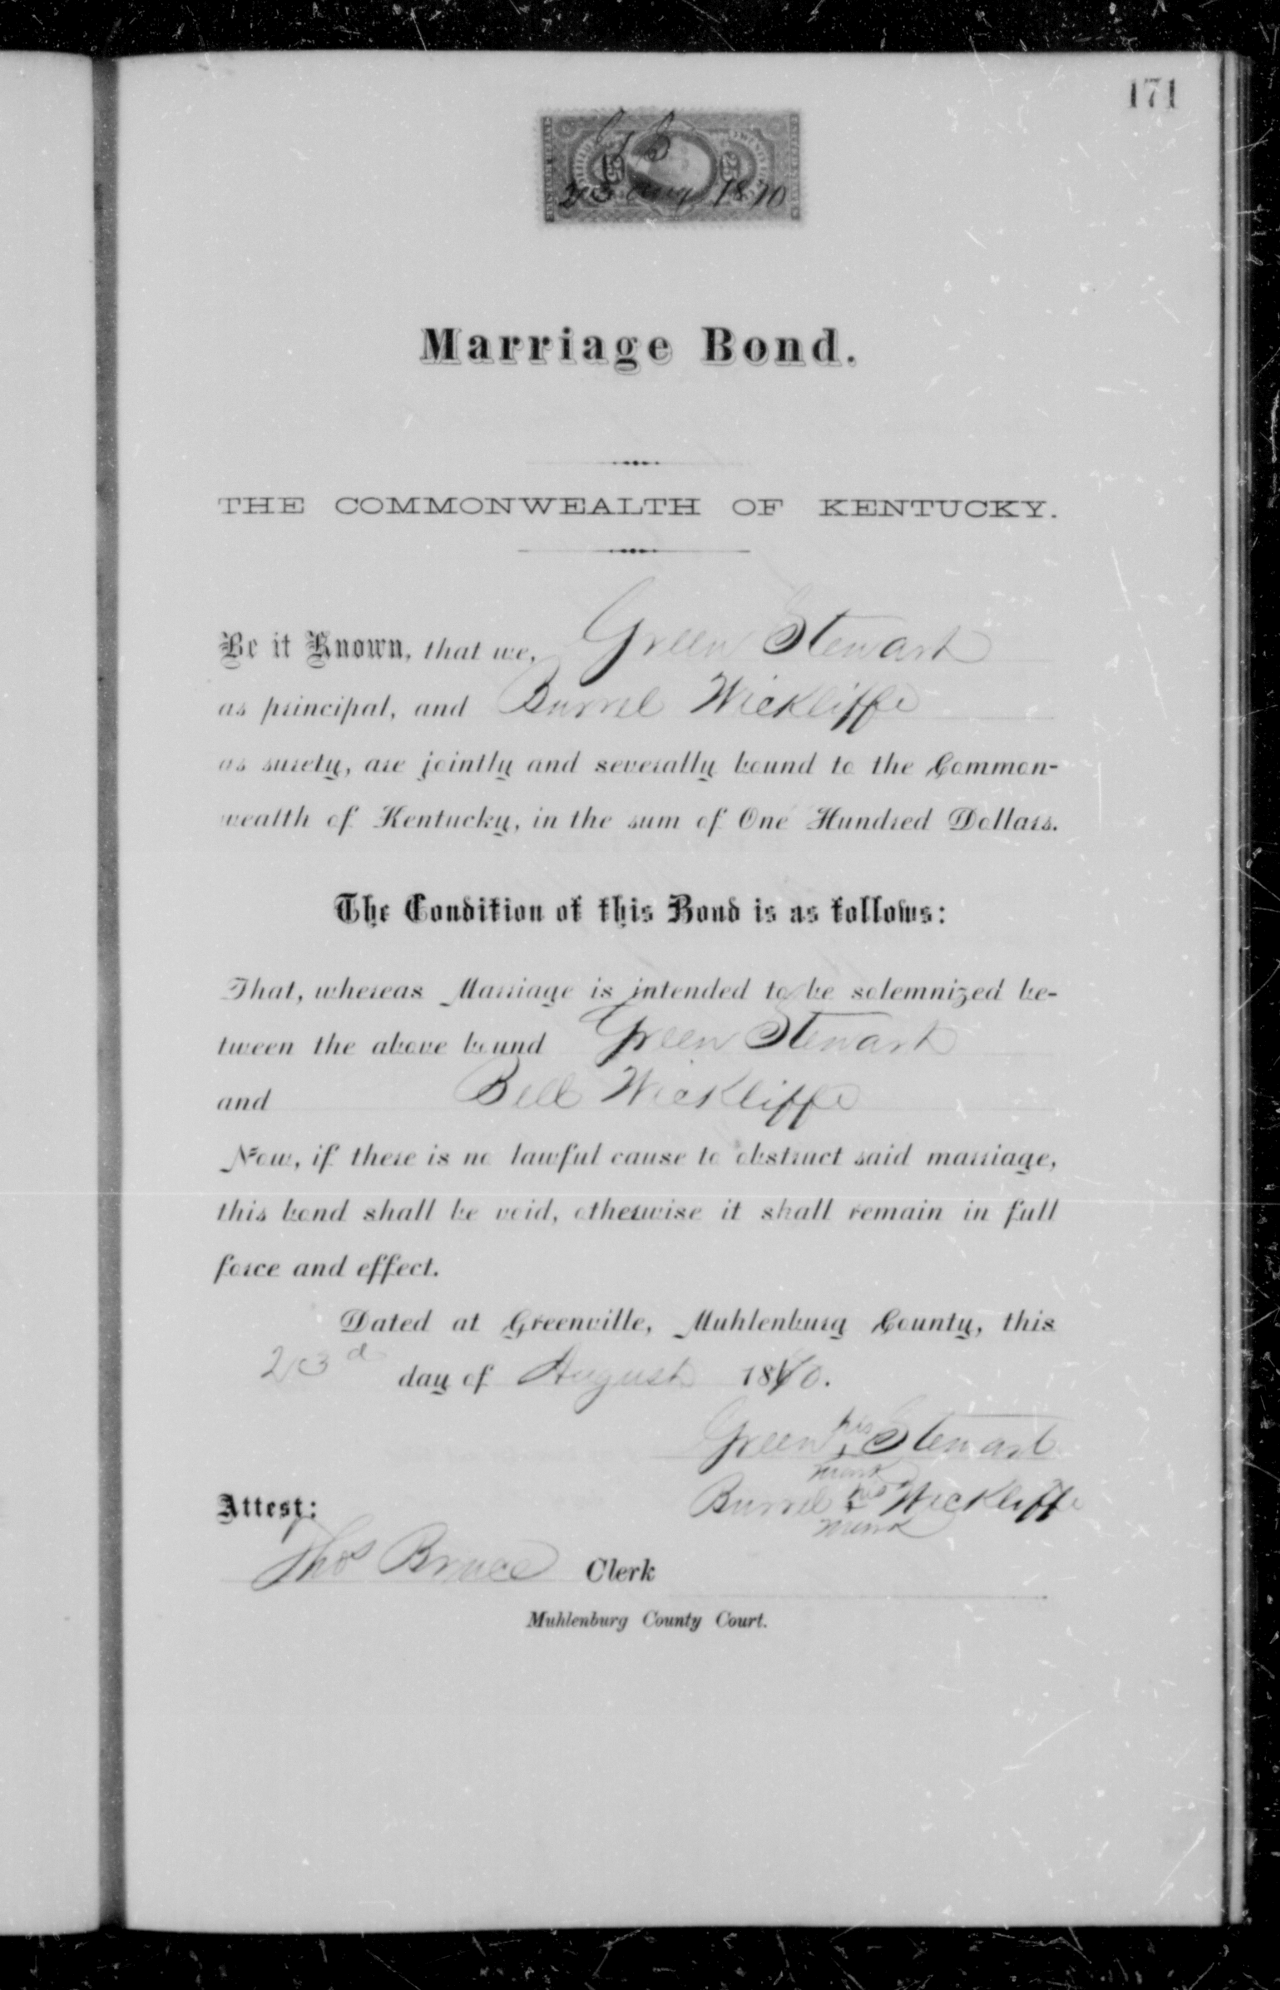 171
25 25
G S
23 Aug 1870
Marriage Bond.
THE COMMONWEALTH OF KENTUCKY.
Be it Known, that we, Green Stewart
as principal, and Burrel Wickliffe
as surety, are jointly and severally bound to the Common-
wealth of Kentucky, in the sum of One Hundred Dollars.
The Condition of this Bond is as follows:
That, whereas Marriage is intended to be solemnized be-
tween the above bound Green Stewart
and Bell Wickliffe
Now, if there is no lawful cause to obstruct said marriage,
this bond shall be void, otherwise it shall remain in full
force and effect.
Dated at Greenville, Muhlenburg County, this
23d day of August 1870.
his
Green + Stewart
mark
his
Burrel + Wickliffe
mark
Attest:
Thos Bruce Clerk
Muhlenburg County Court.